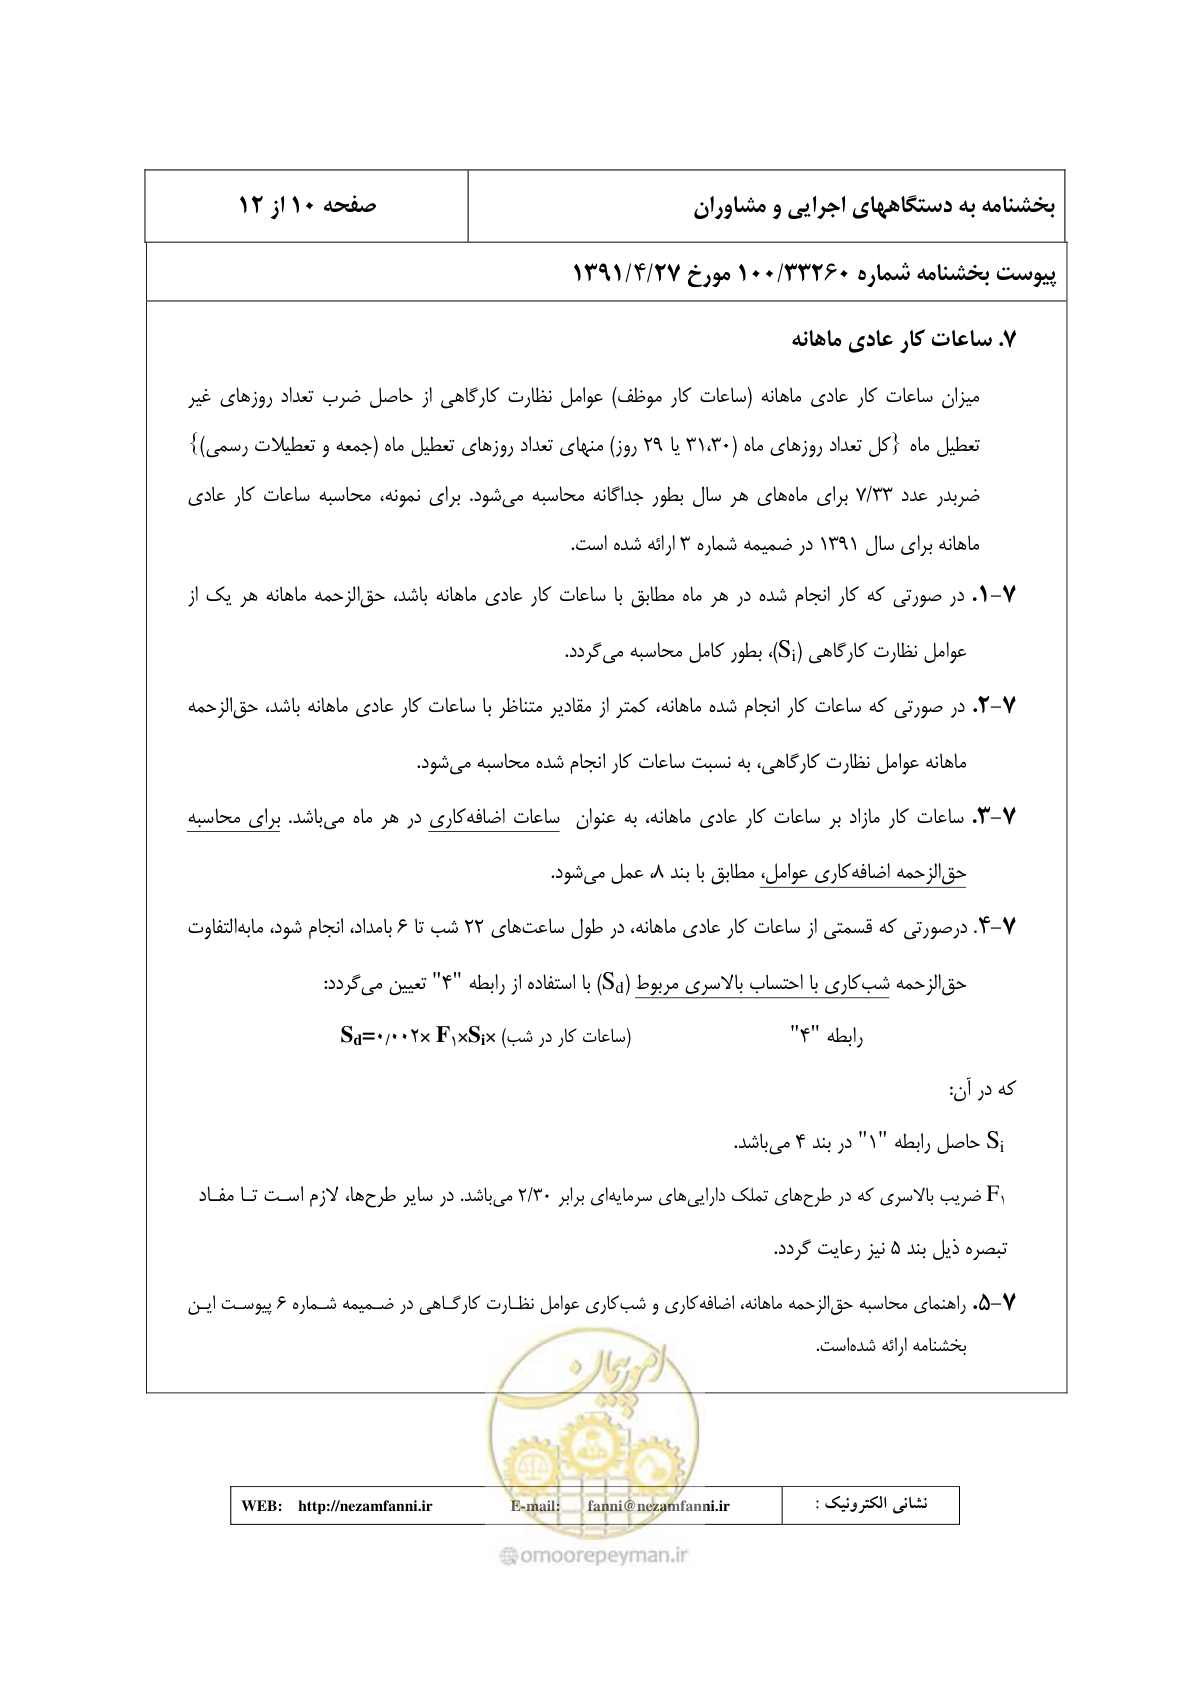 بخشنامه به دستگاههای اجرایی و مشاوران
صفحه ۱۰ از ۱۲
پیوست بخشنامه شماره ۱۰۰/۳۳۲۶۰ مورخ ۱۳۹۱/۴/۲۷
۷. ساعات کار عادی ماهانه
میزان ساعات کار عادی ماهانه (ساعات کار موظف) عوامل نظارت کارگاهی از حاصل ضرب تعداد روزهای غیر
تعطیل ماه {کل تعداد روزهای ماه (۳۱،۳۰ یا ۲۹ روز) منهای تعداد روزهای تعطیل ماه (جمعه و تعطیلات رسمی)}
ضربدر عدد ۷/۳۳ برای ماه‌های هر سال بطور جداگانه محاسبه می‌شود. برای نمونه، محاسبه ساعات کار عادی
ماهانه برای سال ۱۳۹۱ در ضمیمه شماره ۳ ارائه شده است.
۷-۱. در صورتی که کار انجام شده در هر ماه مطابق با ساعات کار عادی ماهانه باشد، حق‌الزحمه ماهانه هر یک از
عوامل نظارت کارگاهی (Si)، بطور کامل محاسبه می‌گردد.
۷-۲. در صورتی که ساعات کار انجام شده ماهانه، کمتر از مقادیر متناظر با ساعات کار عادی ماهانه باشد، حق‌الزحمه
ماهانه عوامل نظارت کارگاهی، به نسبت ساعات کار انجام شده محاسبه می‌شود.
۷-۳. ساعات کار مازاد بر ساعات کار عادی ماهانه، به عنوان ساعات اضافه‌کاری در هر ماه می‌باشد. برای محاسبه
حق‌الزحمه اضافه‌کاری عوامل، مطابق با بند ۸، عمل می‌شود.
۷-۴. درصورتی که قسمتی از ساعات کار عادی ماهانه، در طول ساعت‌های ۲۲ شب تا ۶ بامداد، انجام شود، مابه‌التفاوت
حق‌الزحمه شب‌کاری با احتساب بالاسری مربوط (Sd) با استفاده از رابطه "۴" تعیین می‌گردد:
رابطه "۴" Sd=۰/۰۰۲× F۱×Si× (ساعات کار در شب)
که در آن:
Si حاصل رابطه "۱" در بند ۴ می‌باشد.
F۱ ضریب بالاسری که در طرح‌های تملک دارایی‌های سرمایه‌ای برابر ۲/۳۰ می‌باشد. در سایر طرح‌ها، لازم است تا مفاد
تبصره ذیل بند ۵ نیز رعایت گردد.
۷-۵. راهنمای محاسبه حق‌الزحمه ماهانه، اضافه‌کاری و شب‌کاری عوامل نظارت کارگاهی در ضمیمه شماره ۶ پیوست این
بخشنامه ارائه شده‌است.
امور پیمان
نشانی الکترونیک :
WEB: http://nezamfanni.ir E-mail: fanni@nezamfanni.ir
@omoorepeyman.ir